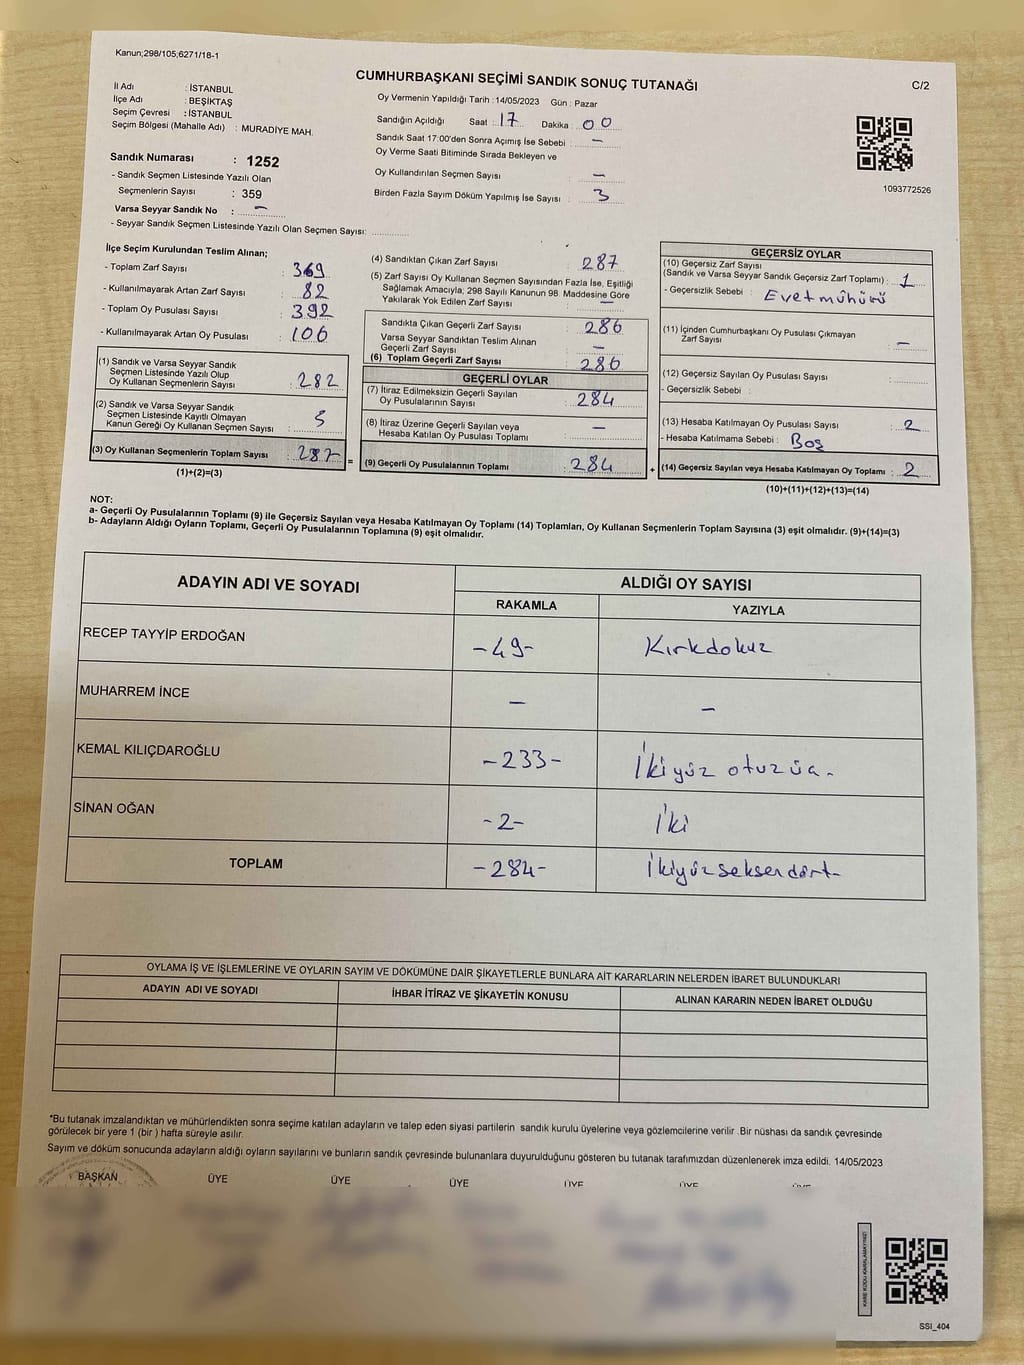 Kanun;298/105;6271/18-1
CUMHURBAŞKANI SEÇİMİ SANDIK SONUÇ TUTANAĞI
C/2
İl Adı : İSTANBUL
İlçe Adı : BEŞİKTAŞ
Seçim Çevresi : İSTANBUL
Seçim Bölgesi (Mahalle Adı) : MURADİYE MAH.
Oy Vermenin Yapıldığı Tarih : 14/05/2023 Gün : Pazar
Sandığın Açıldığı Saat : 17 Dakika : 00
Sandık Saat 17:00'den Sonra Açımış İse Sebebi : –
Oy Verme Saati Bitiminde Sırada Bekleyen ve
Oy Kullandırılan Seçmen Sayısı : –
Birden Fazla Sayım Döküm Yapılmış İse Sayısı : 3
1093772526
Sandık Numarası : 1252
- Sandık Seçmen Listesinde Yazılı Olan
Seçmenlerin Sayısı : 359
Varsa Seyyar Sandık No : –
- Seyyar Sandık Seçmen Listesinde Yazılı Olan Seçmen Sayısı:
İlçe Seçim Kurulundan Teslim Alınan;
- Toplam Zarf Sayısı : 369
- Kullanılmayarak Artan Zarf Sayısı : 82
- Toplam Oy Pusulası Sayısı : 392
- Kullanılmayarak Artan Oy Pusulası : 106
(1) Sandık ve Varsa Seyyar Sandık
Seçmen Listesinde Yazılı Olup
Oy Kullanan Seçmenlerin Sayısı : 282
(2) Sandık ve Varsa Seyyar Sandık
Seçmen Listesinde Kayıtlı Olmayan
Kanun Gereği Oy Kullanan Seçmen Sayısı : 5
(3) Oy Kullanan Seçmenlerin Toplam Sayısı : 287 =
(1)+(2)=(3)
(4) Sandıktan Çıkan Zarf Sayısı : 287
(5) Zarf Sayısı Oy Kullanan Seçmen Sayısından Fazla İse, Eşitliği
Sağlamak Amacıyla; 298 Sayılı Kanunun 98. Maddesine Göre
Yakılarak Yok Edilen Zarf Sayısı : –
Sandıkta Çıkan Geçerli Zarf Sayısı : 286
Varsa Seyyar Sandıktan Teslim Alınan
Geçerli Zarf Sayısı : –
(6) Toplam Geçerli Zarf Sayısı : 286
GEÇERLİ OYLAR
(7) İtiraz Edilmeksizin Geçerli Sayılan
Oy Pusulalarının Sayısı : 284
(8) İtiraz Üzerine Geçerli Sayılan veya
Hesaba Katılan Oy Pusulası Toplamı : –
(9) Geçerli Oy Pusulalarının Toplamı : 284 +
GEÇERSİZ OYLAR
(10) Geçersiz Zarf Sayısı
(Sandık ve Varsa Seyyar Sandık Geçersiz Zarf Toplamı) : 1
- Geçersizlik Sebebi : Evet mühürü
(11) İçinden Cumhurbaşkanı Oy Pusulası Çıkmayan
Zarf Sayısı : –
(12) Geçersiz Sayılan Oy Pusulası Sayısı :
- Geçersizlik Sebebi :
(13) Hesaba Katılmayan Oy Pusulası Sayısı : 2
- Hesaba Katılmama Sebebi : Boş
(14) Geçersiz Sayılan veya Hesaba Katılmayan Oy Toplamı : 2
(10)+(11)+(12)+(13)=(14)
NOT:
a- Geçerli Oy Pusulalarının Toplamı (9) ile Geçersiz Sayılan veya Hesaba Katılmayan Oy Toplamı (14) Toplamları, Oy Kullanan Seçmenlerin Toplam Sayısına (3) eşit olmalıdır. (9)+(14)=(3)
b- Adayların Aldığı Oyların Toplamı, Geçerli Oy Pusulalarının Toplamına (9) eşit olmalıdır.
ADAYIN ADI VE SOYADI ALDIĞI OY SAYISI
RAKAMLA YAZIYLA
RECEP TAYYİP ERDOĞAN -49- Kırkdokuz
MUHARREM İNCE – –
KEMAL KILIÇDAROĞLU -233- İkiyüz otuzüç-
SİNAN OĞAN -2- İki
TOPLAM -284- İkiyüzseksendört-
OYLAMA İŞ VE İŞLEMLERİNE VE OYLARIN SAYIM VE DÖKÜMÜNE DAİR ŞİKAYETLERLE BUNLARA AİT KARARLARIN NELERDEN İBARET BULUNDUKLARI
ADAYIN ADI VE SOYADI İHBAR İTİRAZ VE ŞİKAYETİN KONUSU ALINAN KARARIN NEDEN İBARET OLDUĞU
*Bu tutanak imzalandıktan ve mühürlendikten sonra seçime katılan adayların ve talep eden siyasi partilerin sandık kurulu üyelerine veya gözlemcilerine verilir .Bir nüshası da sandık çevresinde
görülecek bir yere 1 (bir ) hafta süreyle asılır.
Sayım ve döküm sonucunda adayların aldığı oyların sayılarını ve bunların sandık çevresinde bulunanlara duyurulduğunu gösteren bu tutanak tarafımızdan düzenlenerek imza edildi. 14/05/2023
BAŞKAN ÜYE ÜYE ÜYE ÜYE ÜYE ÜYE
SSI_404